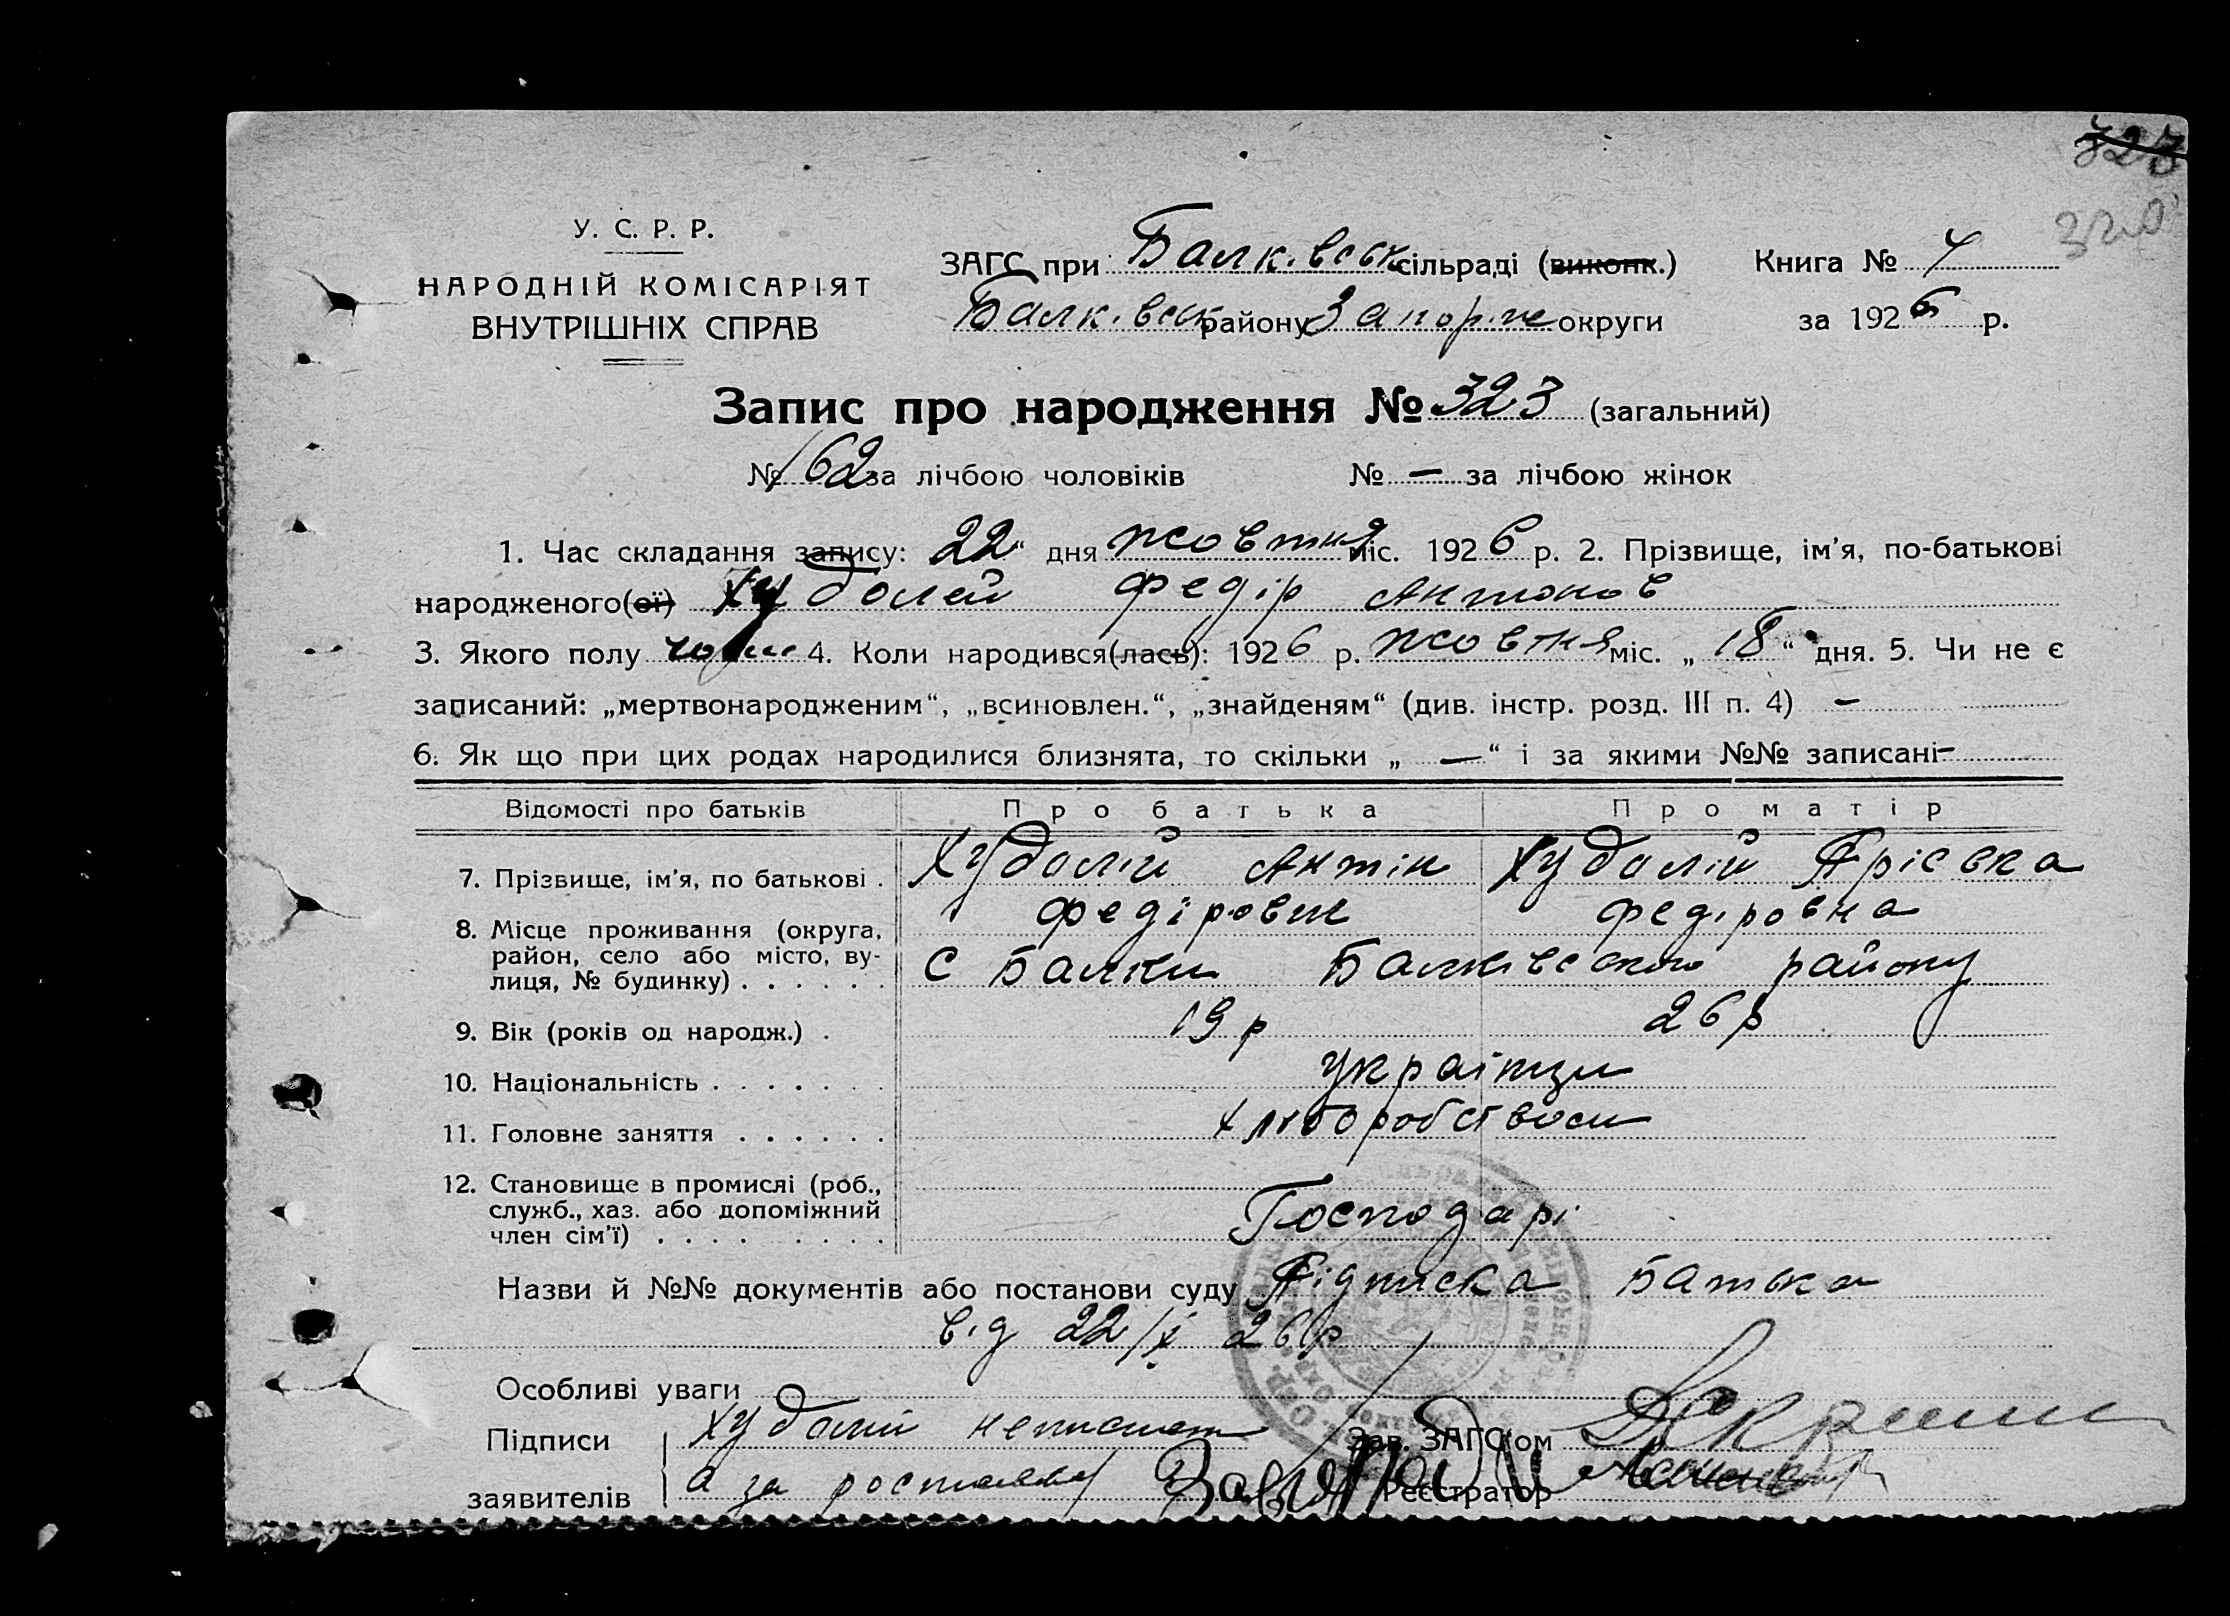 323
320
У. С. Р. Р.
НАРОДНІЙ КОМІСАРІЯТ
ВНУТРІШНІХ СПРАВ
ЗАГС при Балківськ сільраді (виконк.)
Книга № 4
Балківськ району Запоріж округи
за 1926 р.
Запис про народження № 323 (загальний)
№ 162 за лічбою чоловіків № — за лічбою жінок
1. Час складання запису: 22“ дня жовтня міс. 1926 р. 2. Прізвище, ім’я, по-батькові
народженого(ої) Худолей Федір Антонов
3. Якого полу 4. Коли народився(лась): 1926 р. жовтня міс. „18“ дня. 5. Чи не є
записаний: „мертвонародженим“, „всиновлен.“, „знайденям“ (див. інстр. розд. III п. 4) —
6. Як що при цих родах народилися близнята, то скільки „—“ і за якими №№ записані —
Відомості про батьків Про батька Про матір
7. Прізвище, ім’я, по батькові . Худолій Антін Худолій
Федірович Федіровна
8. Місце проживання (округа,
район, село або місто, ву-
лиця, № будинку) . . . . . . с Балки Балківського району
9. Вік (років од народж.) . 19 р 26 р
10. Національність . . . . . . . українци
11. Головне заняття . . . . . . хліборобством
12. Становище в промислі (роб.,
служб., хаз. або допоміжний
член сім’ї) . . . . . . . . Господарі
Назви й №№ документів або постанови суду Підписка Батька
від 22/X 26 р
Особливі уваги
Підписи Худолій Зав. ЗАГС’ом
заявителів а за Реєстратор